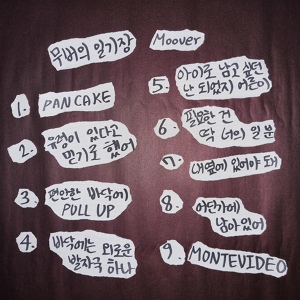 무버의 일기장
Moover
1. PANCAKE
2. 유령이 있다고
믿기로 했어
3. 편안한 바닥에
PULL UP
4. 바닥에는 외로운
발자국 하나
5. 아이로 남고 싶던
난 되었지 어른이
6. 필요한 건
딱 너의 일분
7. 내 옆에 있어야 돼
8. 어딘가에
남아있어
9 MONTEVIDEO